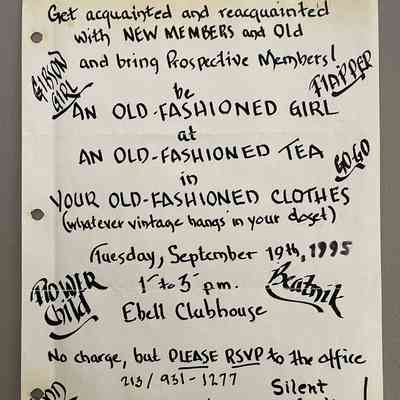 Get acquainted and reacquainted
with NEW MEMBERS and Old
and bring Prospective Members!
GIBSON GIRL
FLAPPER
be
AN OLD-FASHIONED GIRL
at
AN OLD-FASHIONED TEA
GO-GO
in
YOUR OLD-FASHIONED CLOTHES
(whatever vintage hangs in your closet)
Tuesday, September 19th, 1995
FLOWER Child
1 to 3 p.m.
Beatnik
Ebell Clubhouse
No charge, but PLEASE RSVP to the office
213/931-1277
Silent